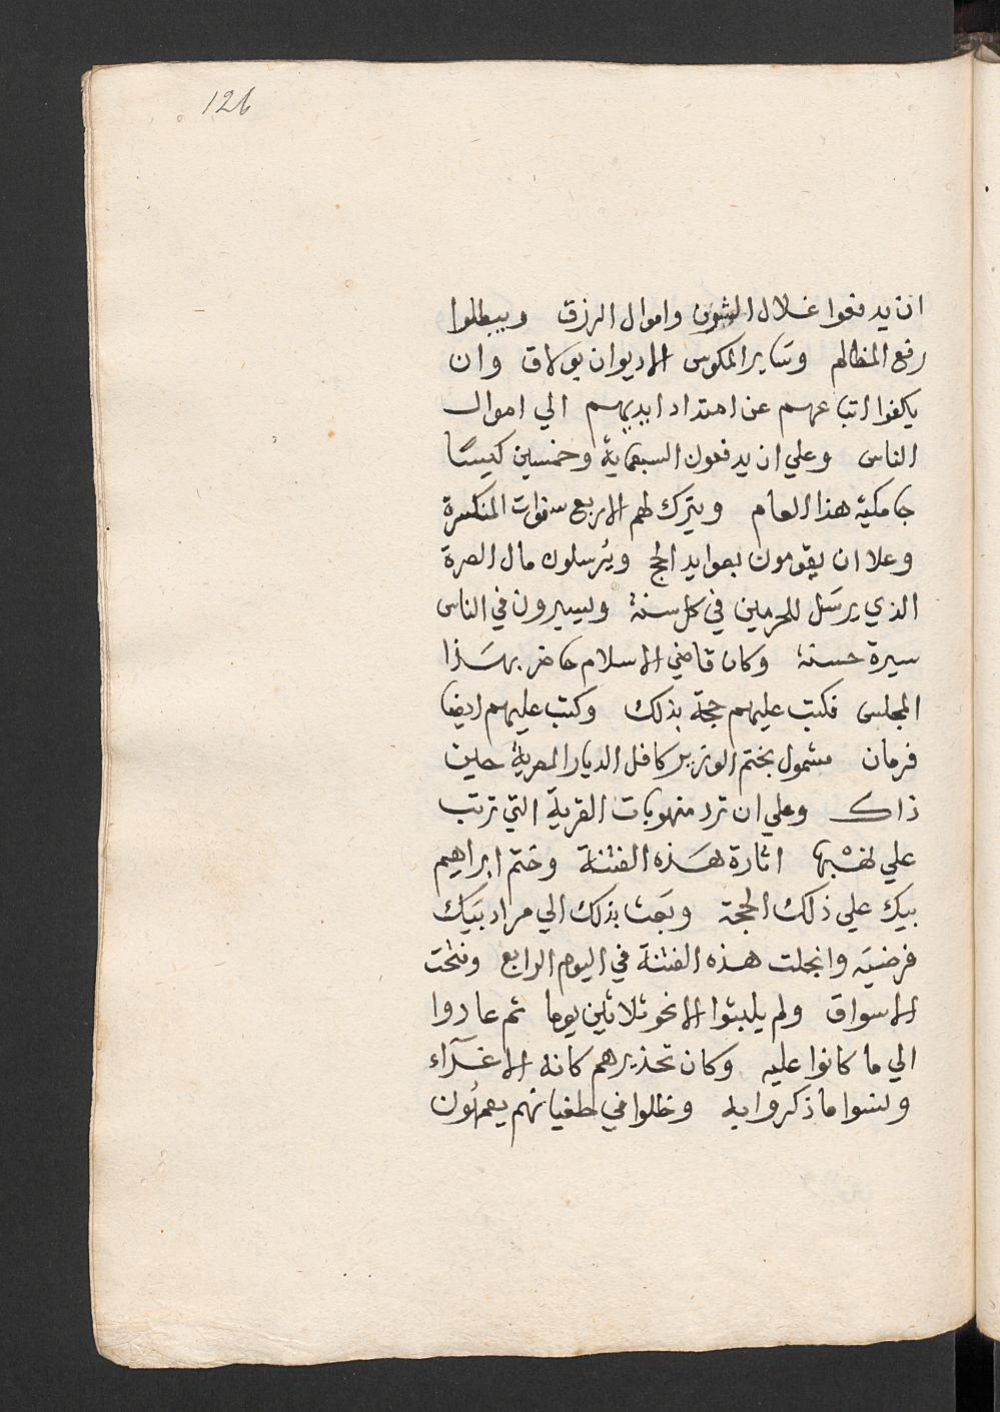 126
ان يدفعوا غلال الشون واموال الرزق ويبطلوا
رفع المظالم وساير المكوس الا ديوان بولاق وان
يكفوا اتباعهم عن امتداد ايديهم الي اموال
الناس وعلي ان يدفعون السبعماية وخمسين كيسًا
جامكية هذا العام ويترك لهم الاربع سنوات المنكسرة
وعلا ان يقومون بعوايد الحج ويُرسلون مال الصرة
الذي يرسَل للحرمين في كل سنة ويسيرون في الناس
سيرة حسنة وكان قاضي الاسلام حاضر بهَذا
المجلس فكتب عليهم حجة بذلك وكتب عليهم ايضا
فرمان مشمول بختم الوزير كافل الديار المصرية حين
ذاك وعلي ان ترد منهوبات القرية التي ترتب
علي نهْبها اثارة هَذه الفتنة وختم ابراهيم
بيك علي ذلك الحجة وبَعث بذلك الي مراد بَيك
فرضيَه وانجلت هذه الفتنة في اليوم الرابع وفتحت
الاسواق ولم يلبثوا الا نحو ثلاثين يوما ثم عادوا
الي ما كانوا عليه وكان تحذيرهم كانه الاغرآء
ونسوا ما ذكروا به وظلوا في طغيانهم يعمهُون